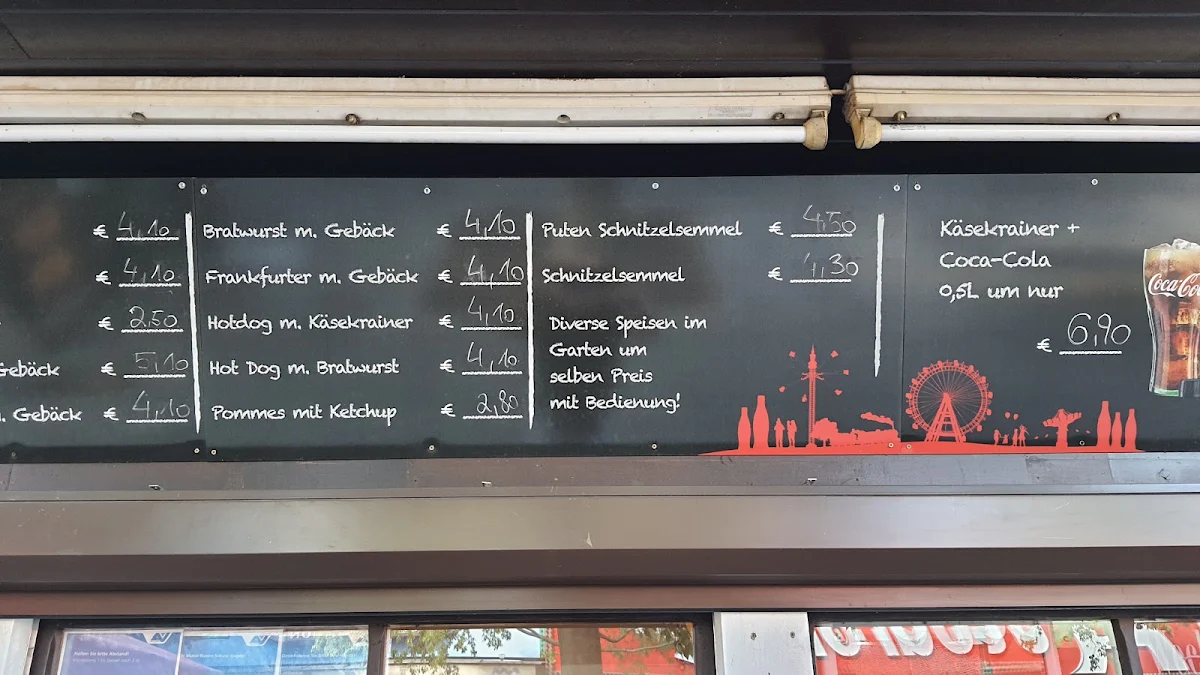 € 4,10
€ 4,10
€ 2,50
Gebäck € 5,10
. Gebäck € 4,10
Bratwurst m. Gebäck € 4,10
Frankfurter m. Gebäck € 4,10
Hotdog m. Käsekrainer € 4,10
Hot Dog m. Bratwurst € 4,10
Pommes mit Ketchup € 2,80
Puten Schnitzelsemmel € 4,50
Schnitzelsemmel € 4,30
Diverse Speisen im
Garten um
selben Preis
mit Bedienung!
Käsekrainer +
Coca-Cola
0,5L um nur
€ 6,90
Coca-Co